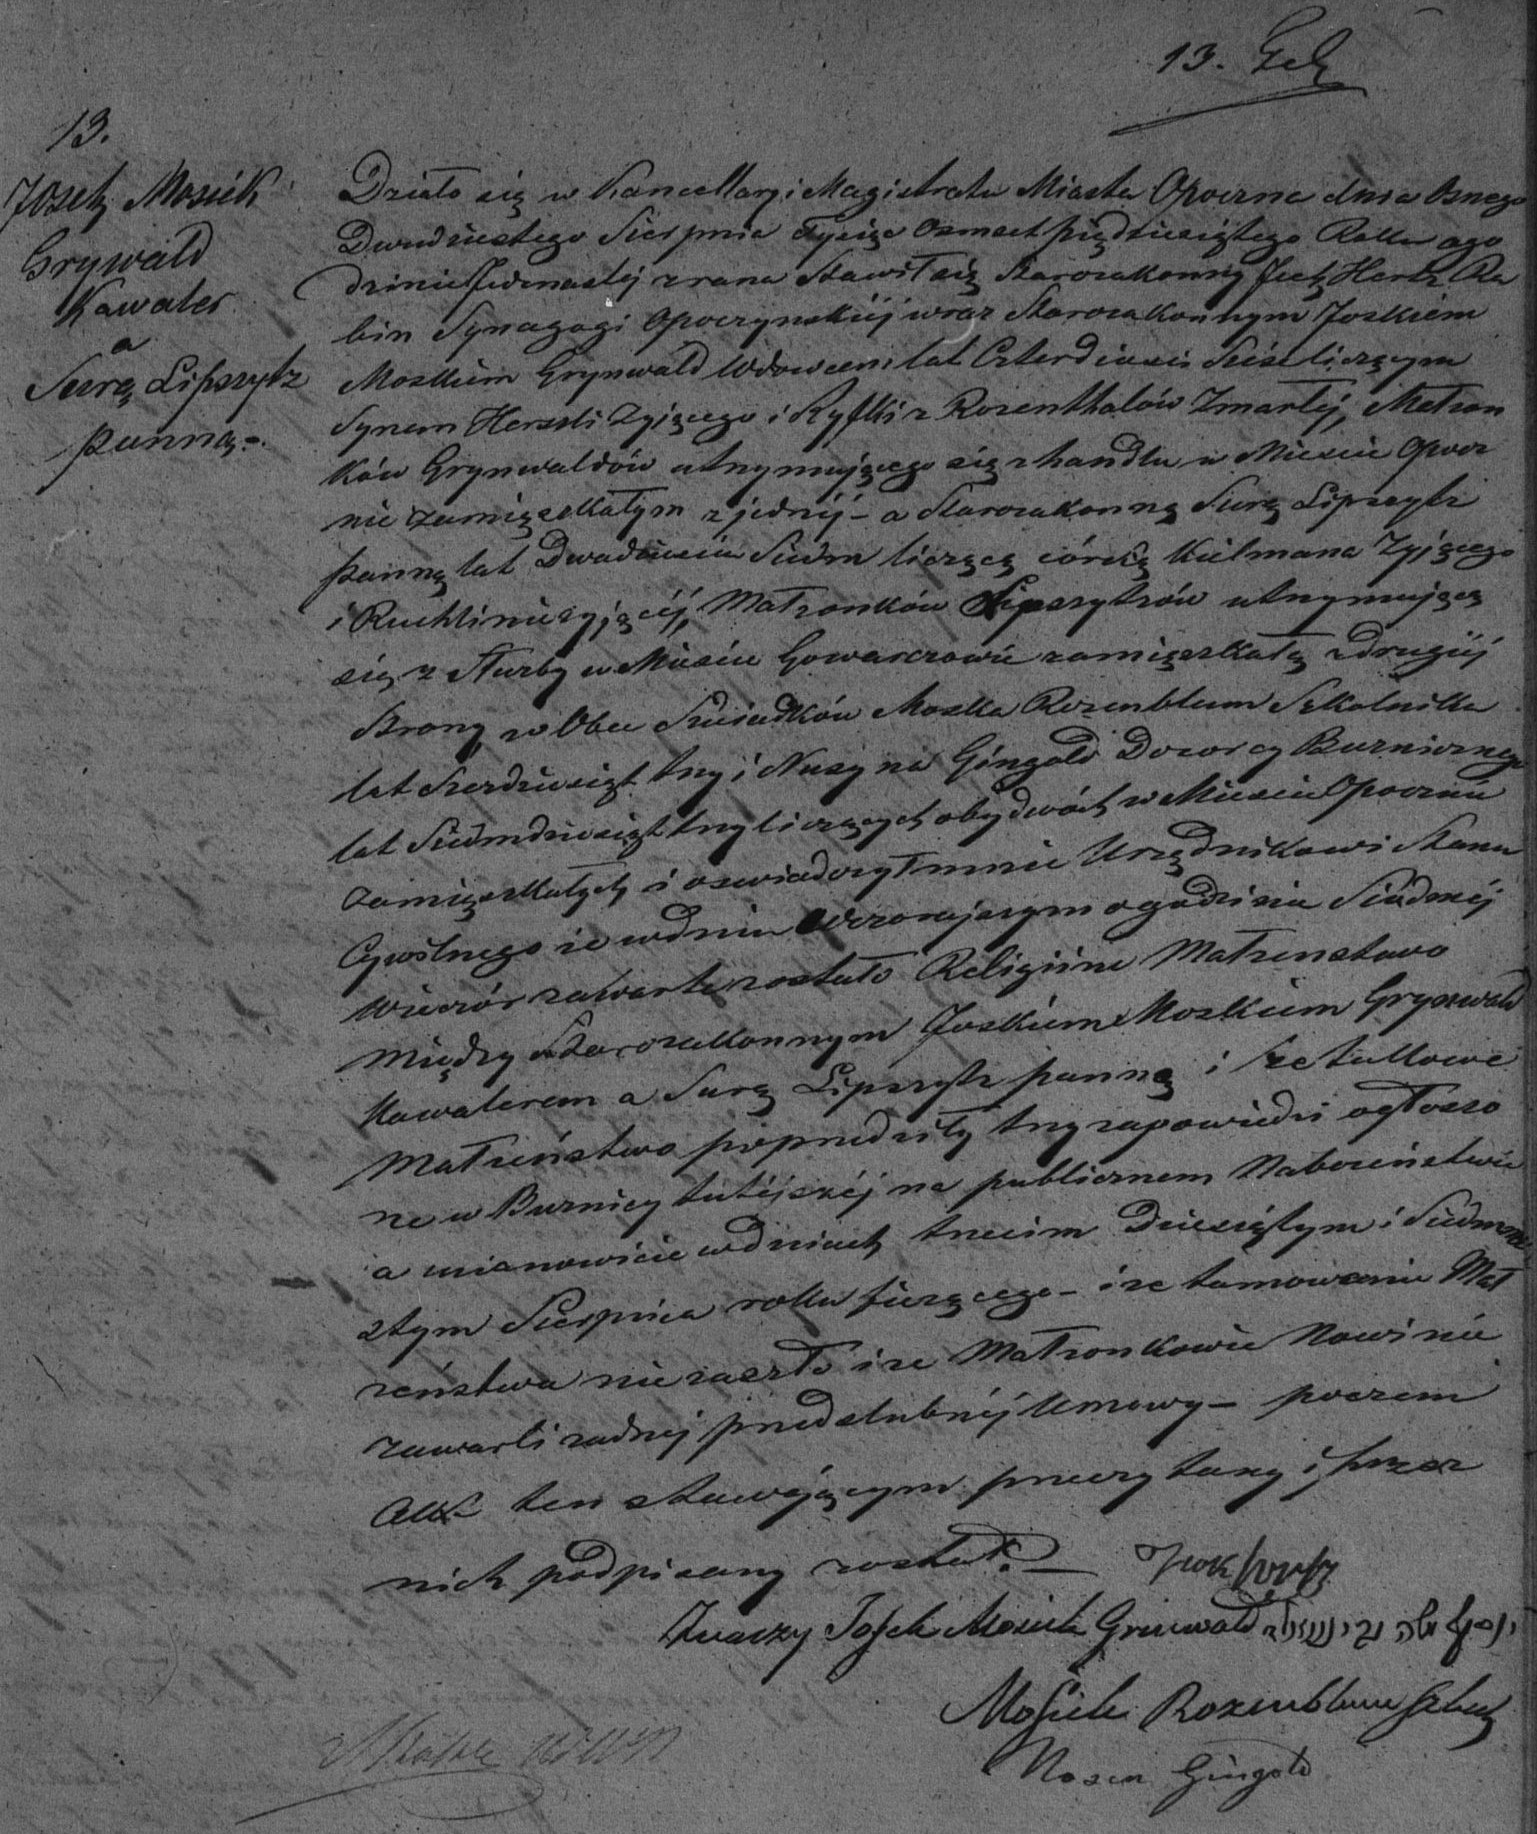 13.
13.
Josek Mosiek
Grynwald
Kawaler
a
Surą Lipszytz
Panną.
Działo się w Kancellaryi Magistratu Miasta Opoczna dnia Osmego
Dwudziestego Sierpnia Tysiąc Osmset pięćdziesiątego Roku ogo
dzinie Jedenastej z rana Stawił się Starozakonny Hertz Ra
bin Synagogi Opoczynskiej wraz Starozakonnym Joskiem
Moskiem Grynwald Wdowcem lat Czterdzieści Sześć liczącym
Synem Herszli żyjącego i Ryfki z Rozenthalów Zmarłej, Małżon
ków Grynwaldów utrzymującego się z handlu w Mieście Opocz
nie zamięszkałym z jednéj - a Starozakonną Surą Lipszytz
panną lat Dwadzieścia Siedm liczącą córką Kielmana żyjącego
i Ruchli nieżyjącéj, Małżonków Lipszytzów utrzymującą
się z Służby w Mieście Gowarczowie zamięszkałą z drugiéj
Strony, w Obec Świadków Moska Rozenblum Szkolnika
lat trzy i Nusyna Gingold Dozorcy Bużnicznego
lat Siedmdziesiąt trzy liczących obydwóch w Mieście Opocznie
zamięszkałych i oswiadczył mnie Urzędnikowi Stanu
Cywilnego że w dniu wczorajszym o godzinie Siódméj
Wieczór zawarte zostało Religijne Małżenstwo
między Starozakonnym Joskiem Moskiem Grynwald
Kawalerem a Surą Lipszytz panną i że takowe
Małżeństwo poprzedziły trzy zapowiedzi ogłoszo
ne w Bużnicy tutéjszéj na publicznem Nabożeństwie
a mianowicie w dniach trzecim Dziesiątym i Siedmna
stym Sierpnia roku bieżącego - i że tamowanie Mał
żeństwa nie zaszło i że Małżonkowie Nowi nie
zawarli żadnéj przedslubnéj Umowy - poczem
Akt ten stawającym przeczytany i przez
nich podpisany został.
Josek Mosiek Grinwald יוסף משה גרינוואלד
Mosiek Rozenblum
Nosen Gingold